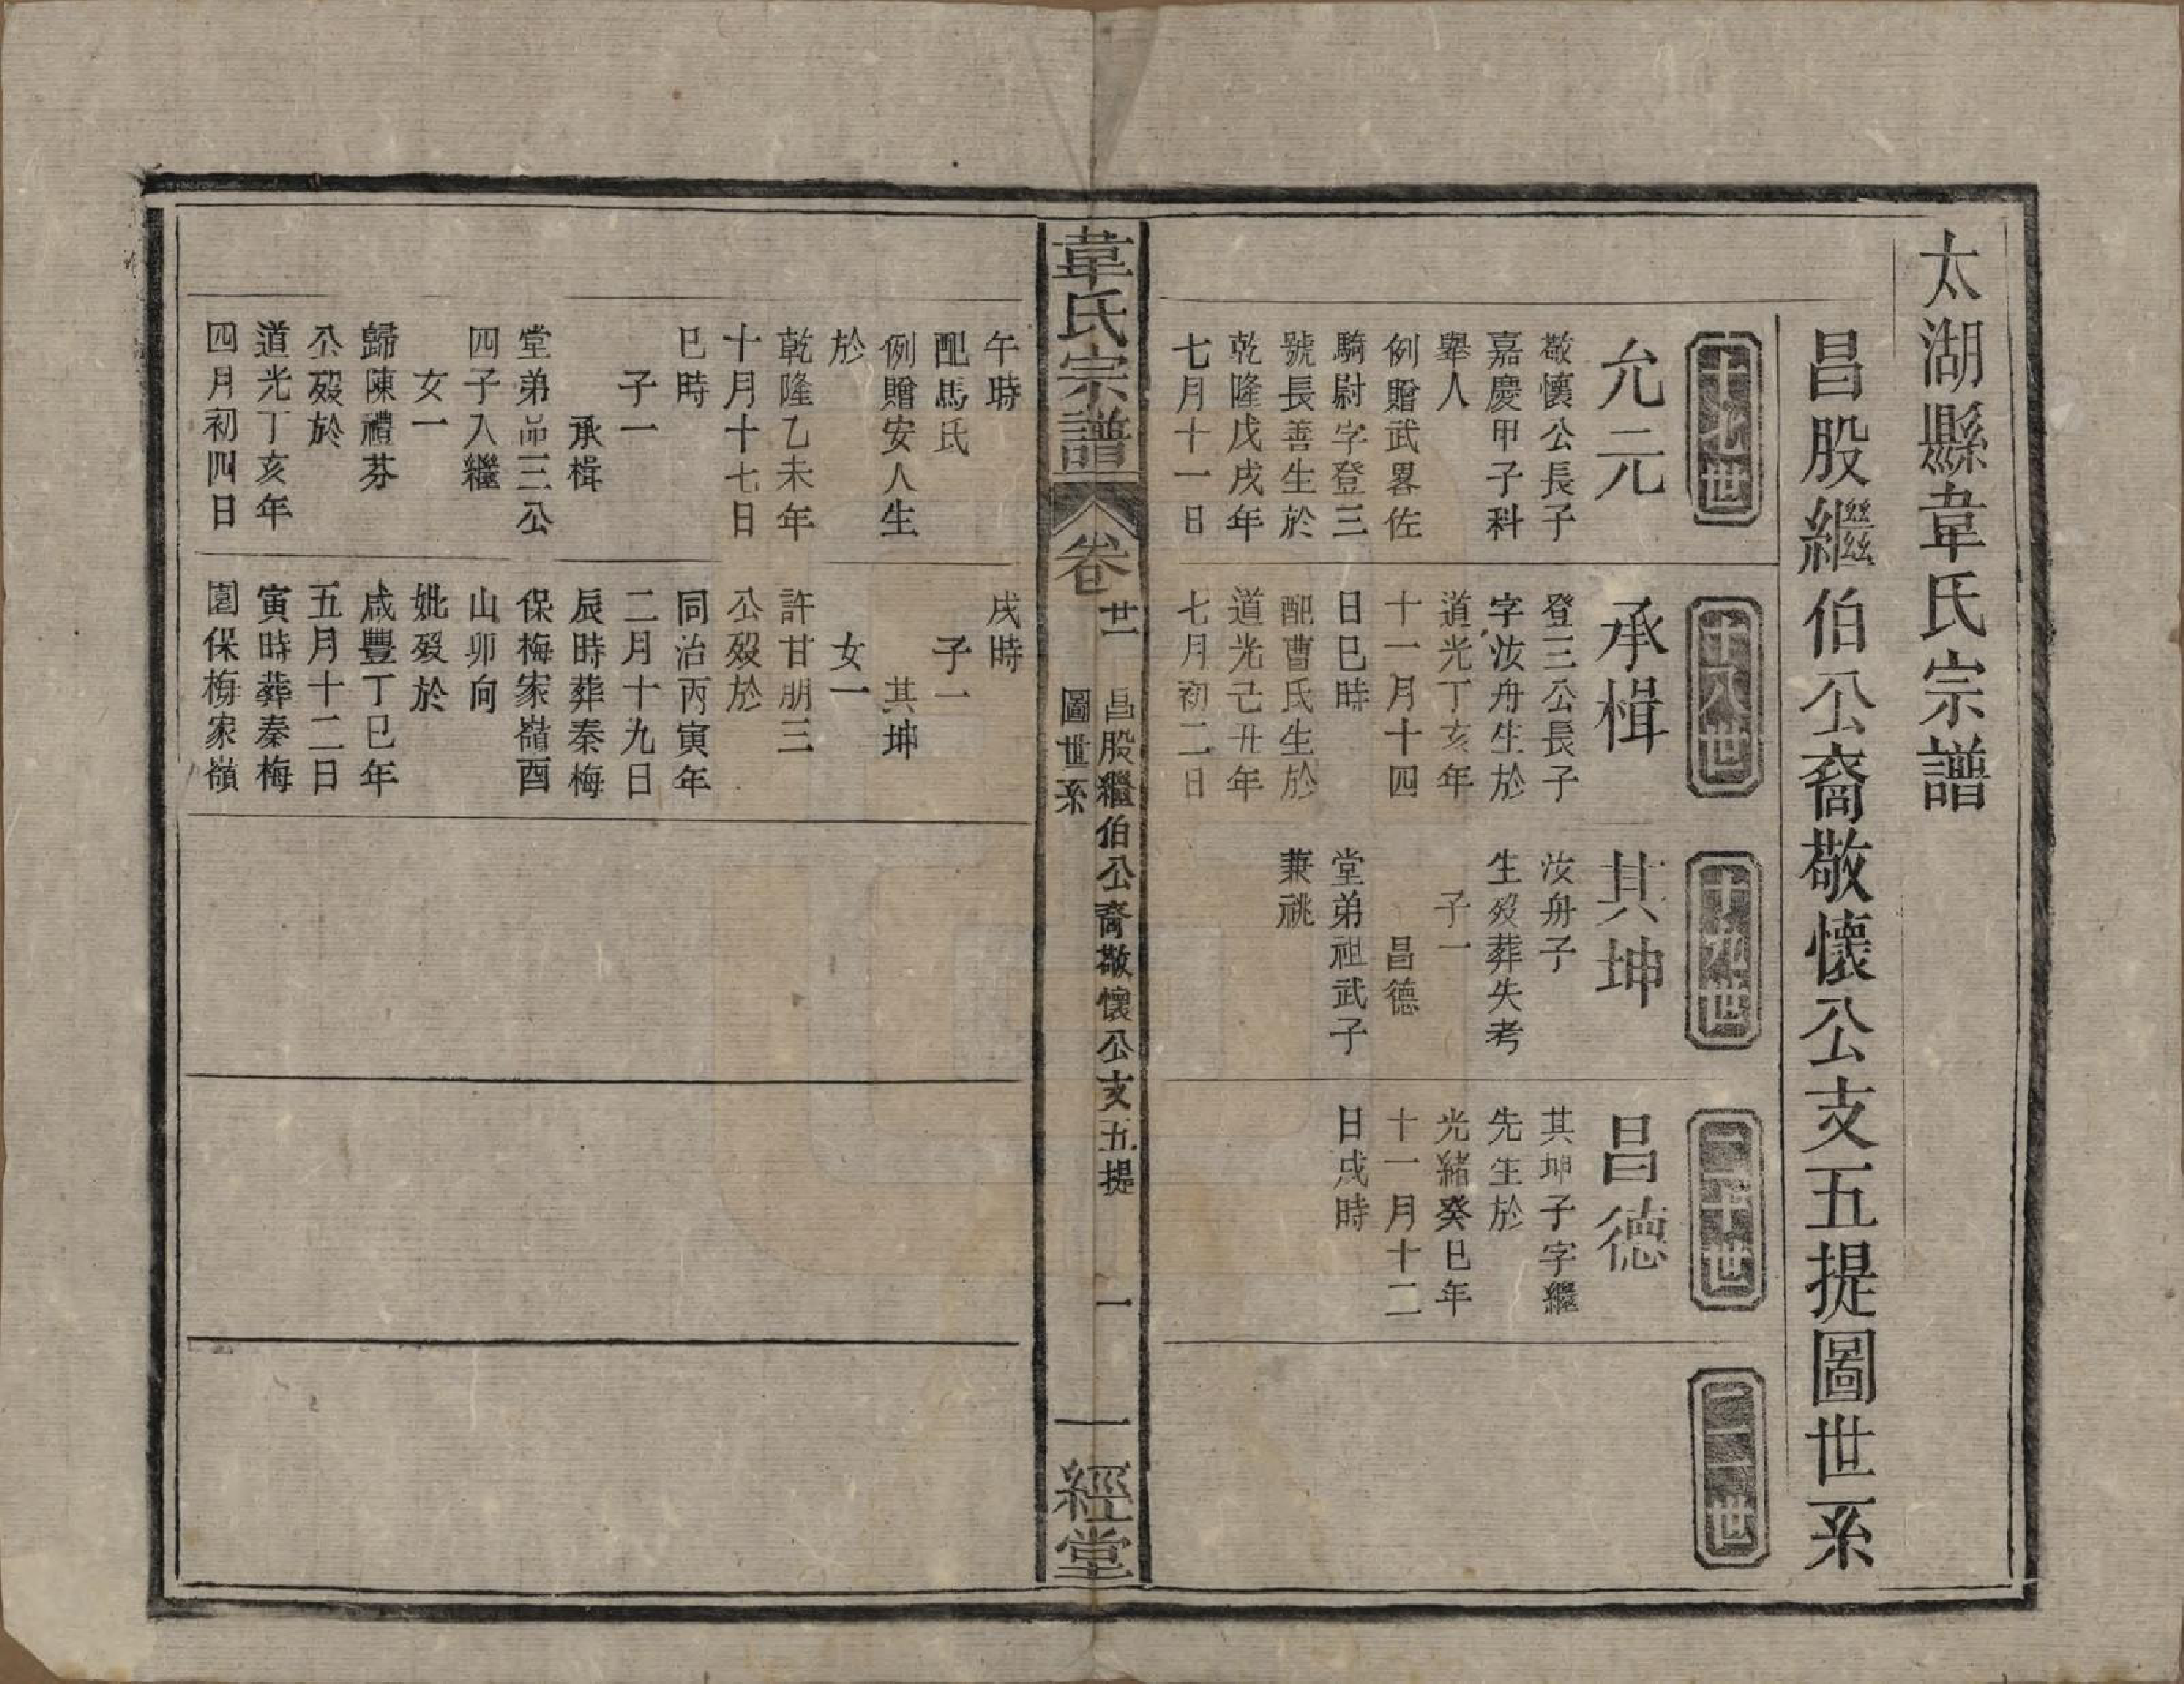 太湖縣韋氏宗譜
昌股繼伯公裔敬懷公支五提圖世系
十七世
允元
敬懷公長子
嘉慶甲子科
舉人
例贈武畧佐
騎尉字登三
號長善生於
乾隆戊戌年
七月十一日
十八世
承楫
登三公長子
字汝舟生於
道光丁亥年
十一月十四
日巳時
配曹氏生於
道光己丑年
七月初二日
十九世
其坤
汝舟子
生歿葬失考
子一
昌德
堂弟祖武子
兼祧
二十世
昌德
其坤子字繼
先生於
光緒癸巳年
十一月十二
日戌時
二一世
韋氏宗譜
卷廿一
昌股繼伯公裔敬懷公支五提
圖世系
一
一經堂
午時
配馬氏
例贈安人生
於
乾隆乙未年
十月十七日
巳時
子一
承楫
堂弟品三公
四子入繼
女一
歸陳禮芬
公歿於
道光丁亥年
四月初四日
戌時
子一
其坤
女一
許甘朋三
公歿於
同治丙寅年
二月十九日
辰時葬秦梅
保梅家嶺酉
山卯向
妣歿於
咸豐丁巳年
五月十二日
寅時葬秦梅
園保梅家嶺